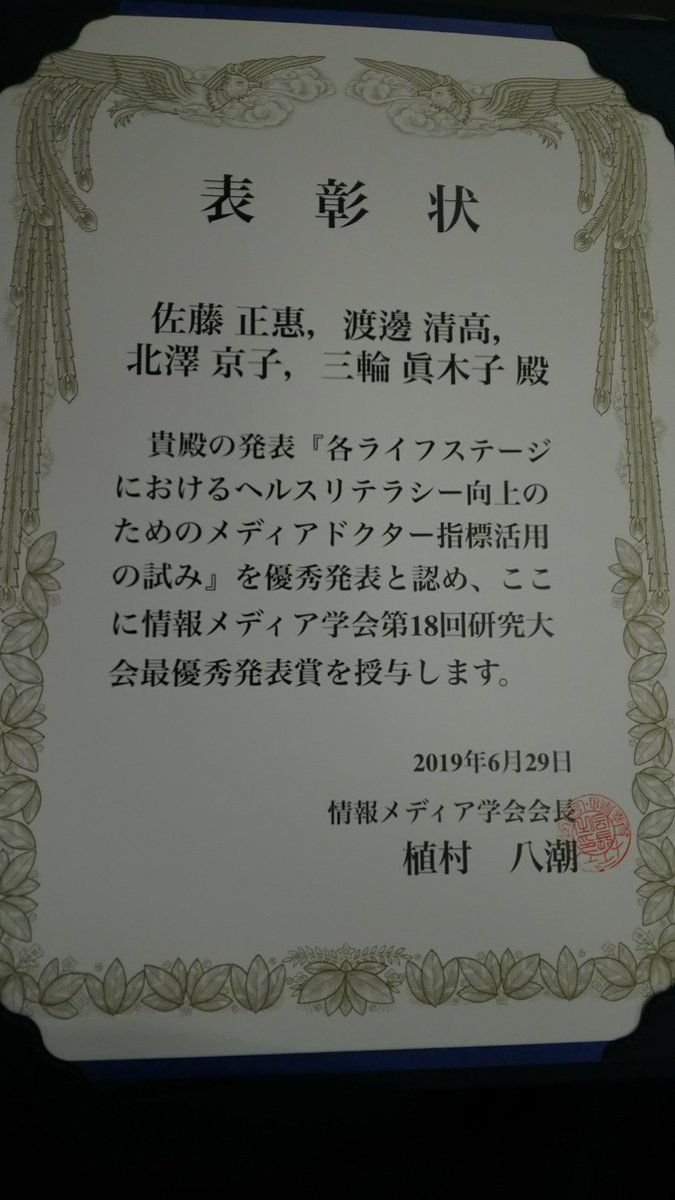 表 彰 状
佐藤 正惠, 渡邊 清高,
北澤 京子, 三輪 眞木子 殿
貴殿の発表『各ライフステージ
におけるヘルスリテラシー向上の
ためのメディアドクター指標活用
の試み』を優秀発表と認め、ここ
に情報メディア学会第18回研究大
会最優秀発表賞を授与します。
2019年6月29日
情報メディア学会会長
植村 八潮